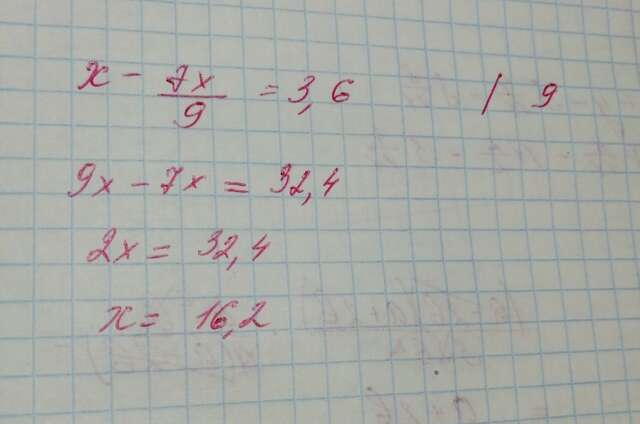 x - 7x/9 = 3,6 | 9
9x - 7x = 32,4
2x = 32,4
x = 16,2